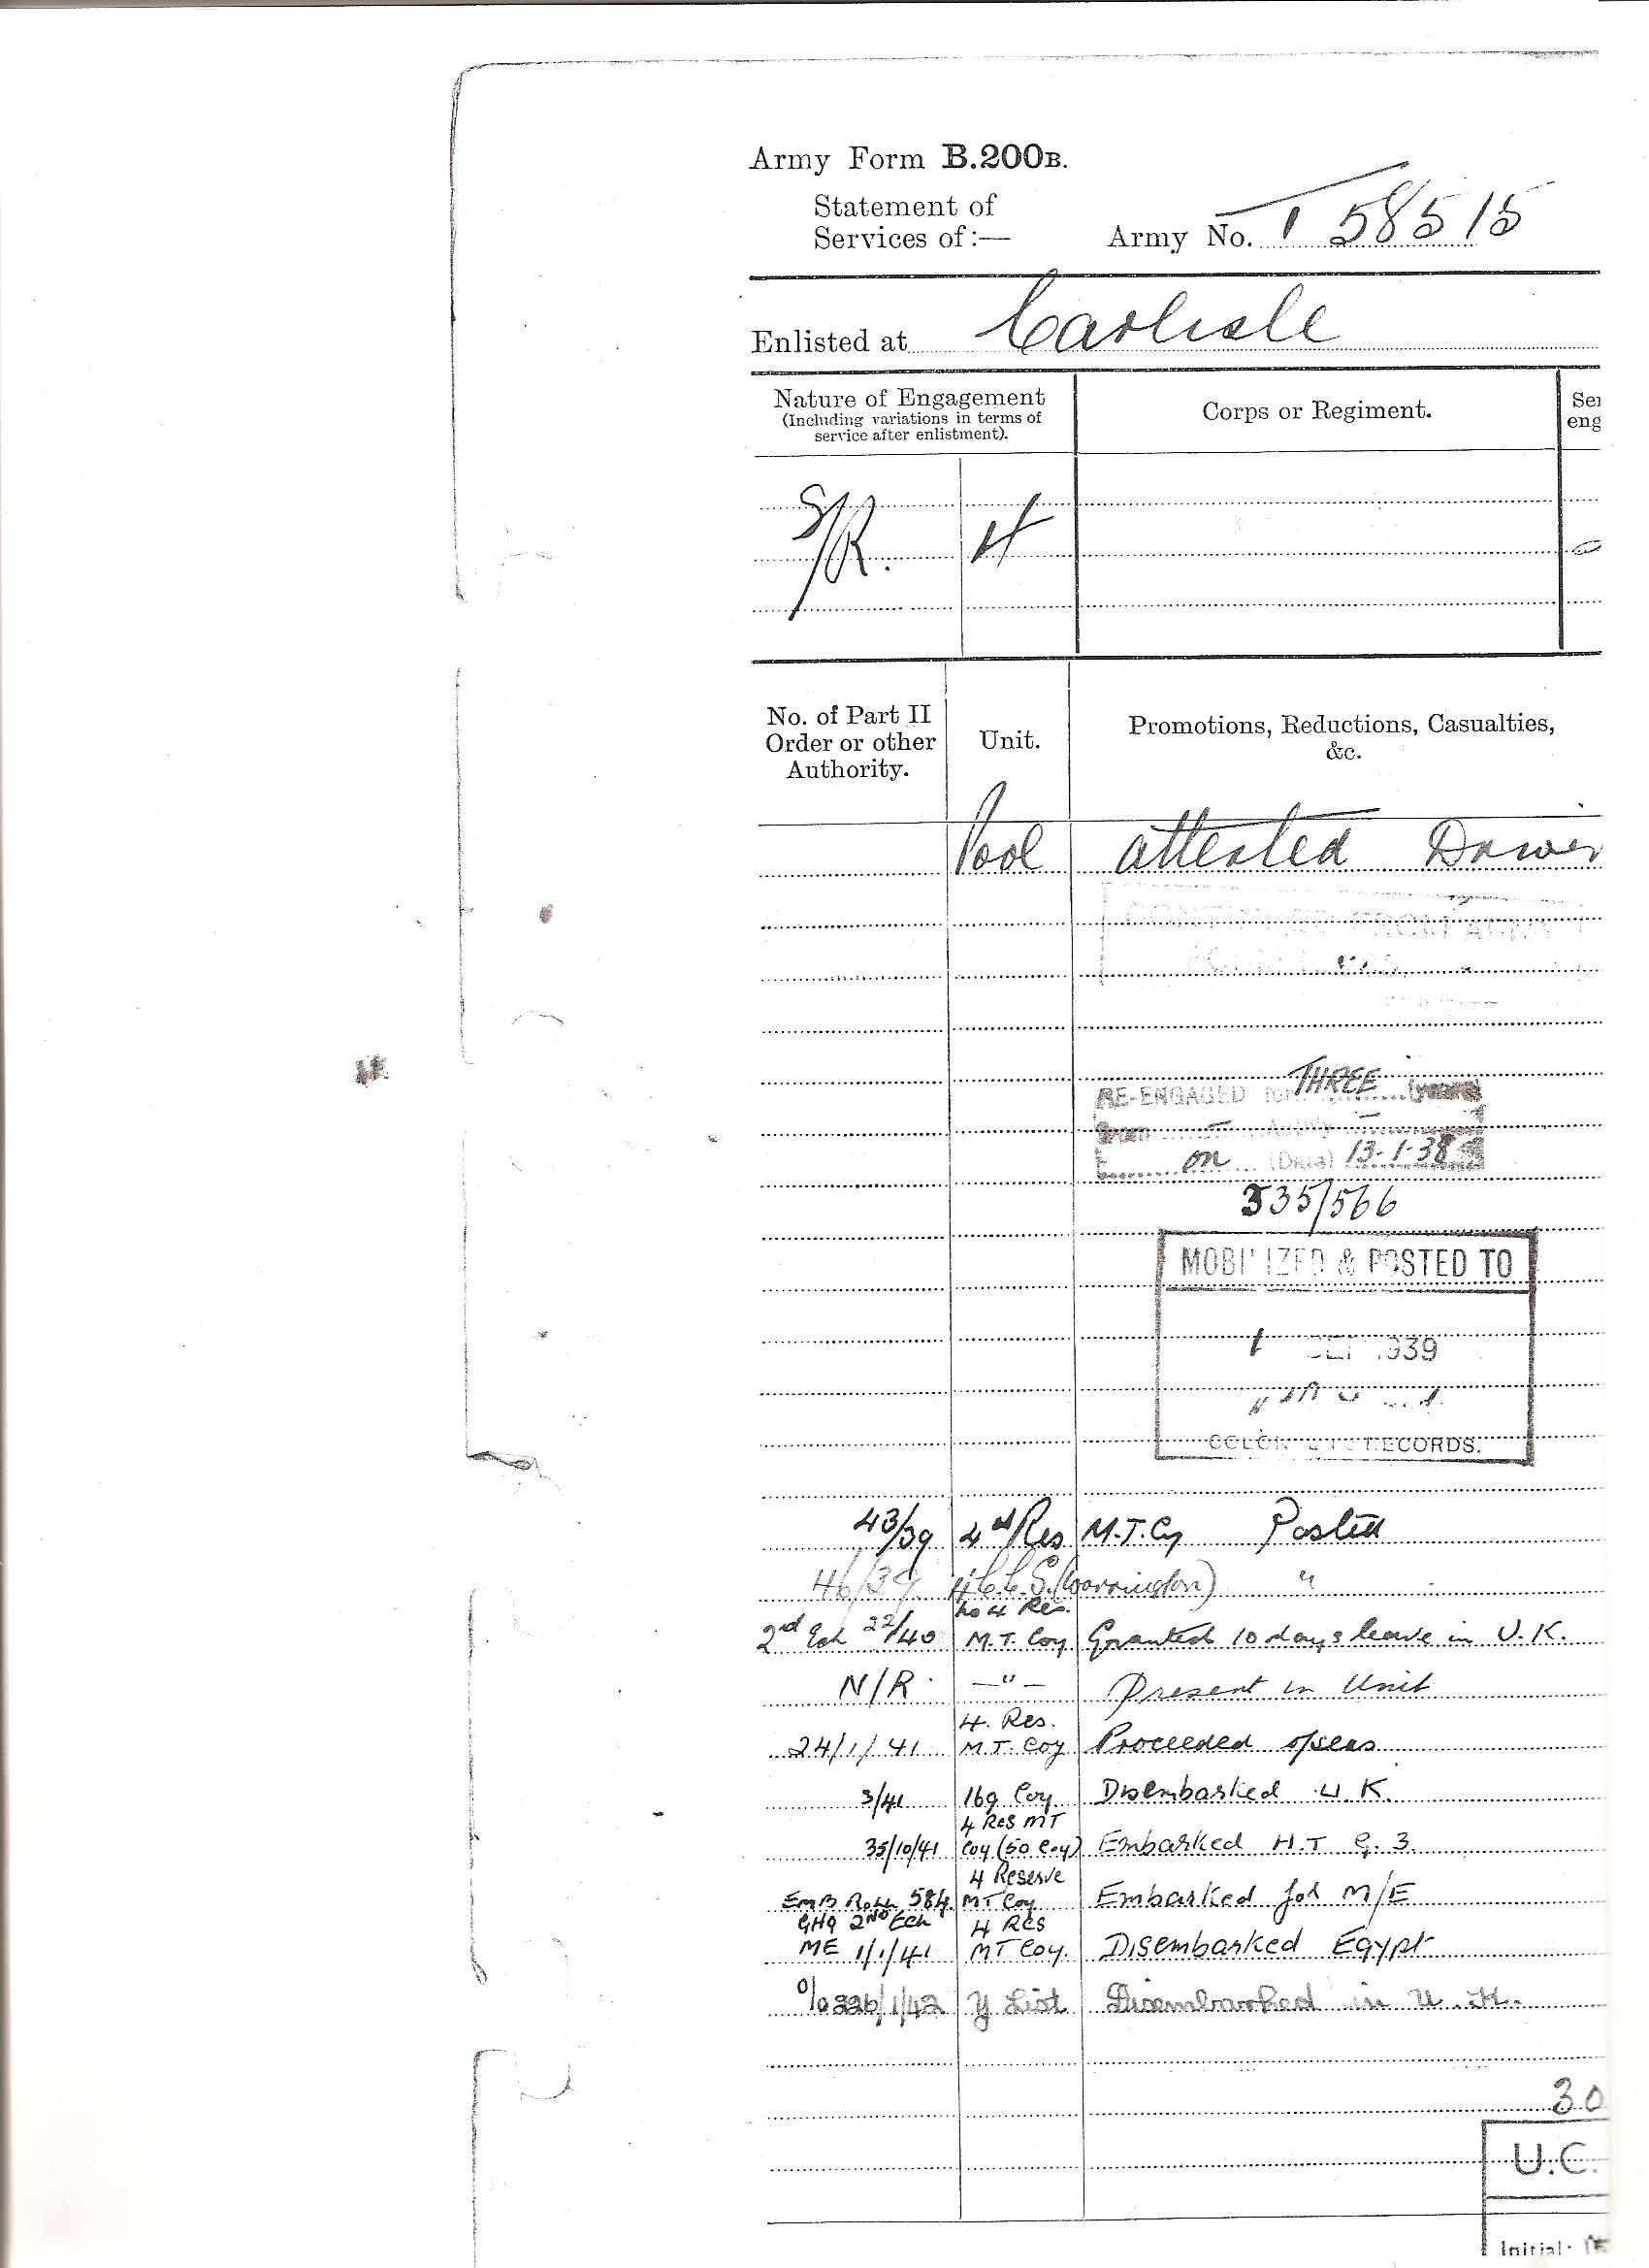 Army Form B.200B.
Statement of
Services of:— Army No. T 58515
Enlisted at Carlisle
Nature of Engagement
(Including variations in terms of
service after enlistment).
Corps or Regiment.
Ser
eng
S/R. 4
No. of Part II
Order or other
Authority.
Unit.
Promotions, Reductions, Casualties,
&c.
Pool attested Driver
CONTINUED FROM ARMY
RE-ENGAGED for THREE
on (Date) 13-1-38
335/566
MOBILIZED & POSTED TO
1 SEP 1939
RECORDS.
43/39 4th Res M.T. Cy Posted
46/39 4 C.C.S. (Warrington) "
2nd Ech 22/40 No 4 Res.
M.T. Coy Granted 10 days leave in U.K.
N/R —"— Present in Unit
24/1/41 4. Res.
M.T. Coy Proceeded o/seas
3/41 169 Coy Disembarked U.K.
35/10/41 4 Res MT
Coy (50 Coy) Embarked H.T G.3.
Emb Roll 584 4 Reserve
MT Coy Embarked for M/E
GHQ 2ND Ech
ME 1/1/41 4 Res
MT Coy. Disembarked Egypt
22b/1/42 Y List Disembarked in U.K.
30
U.C.
Initial: